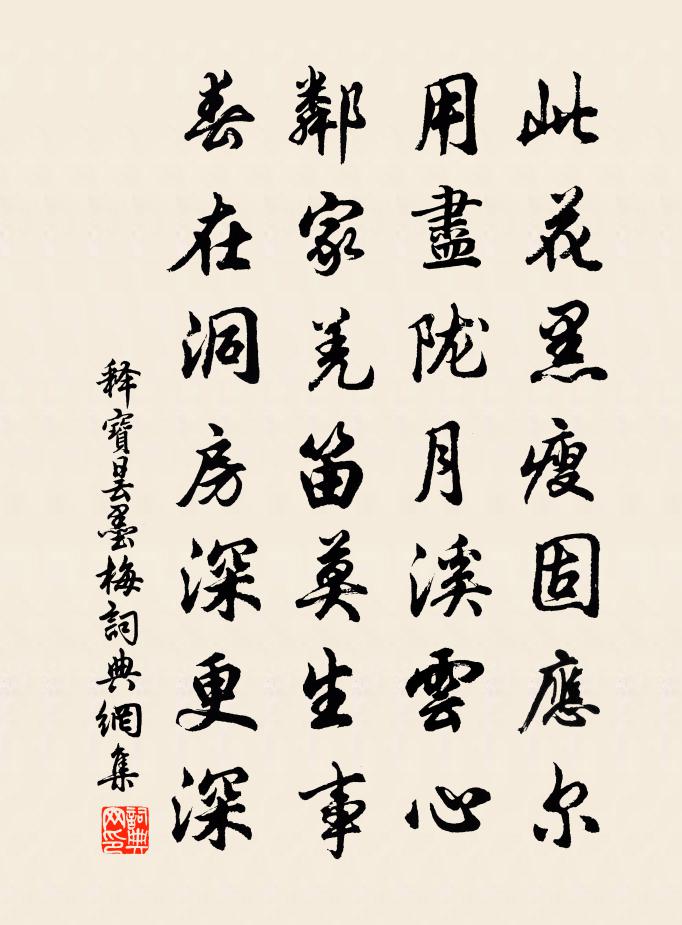 此花黑瘦固應尔
用盡陇月溪雲心
鄰家羌笛莫生事
春在洞房深更深
释寶昙墨梅詞典網集
詞典
网印